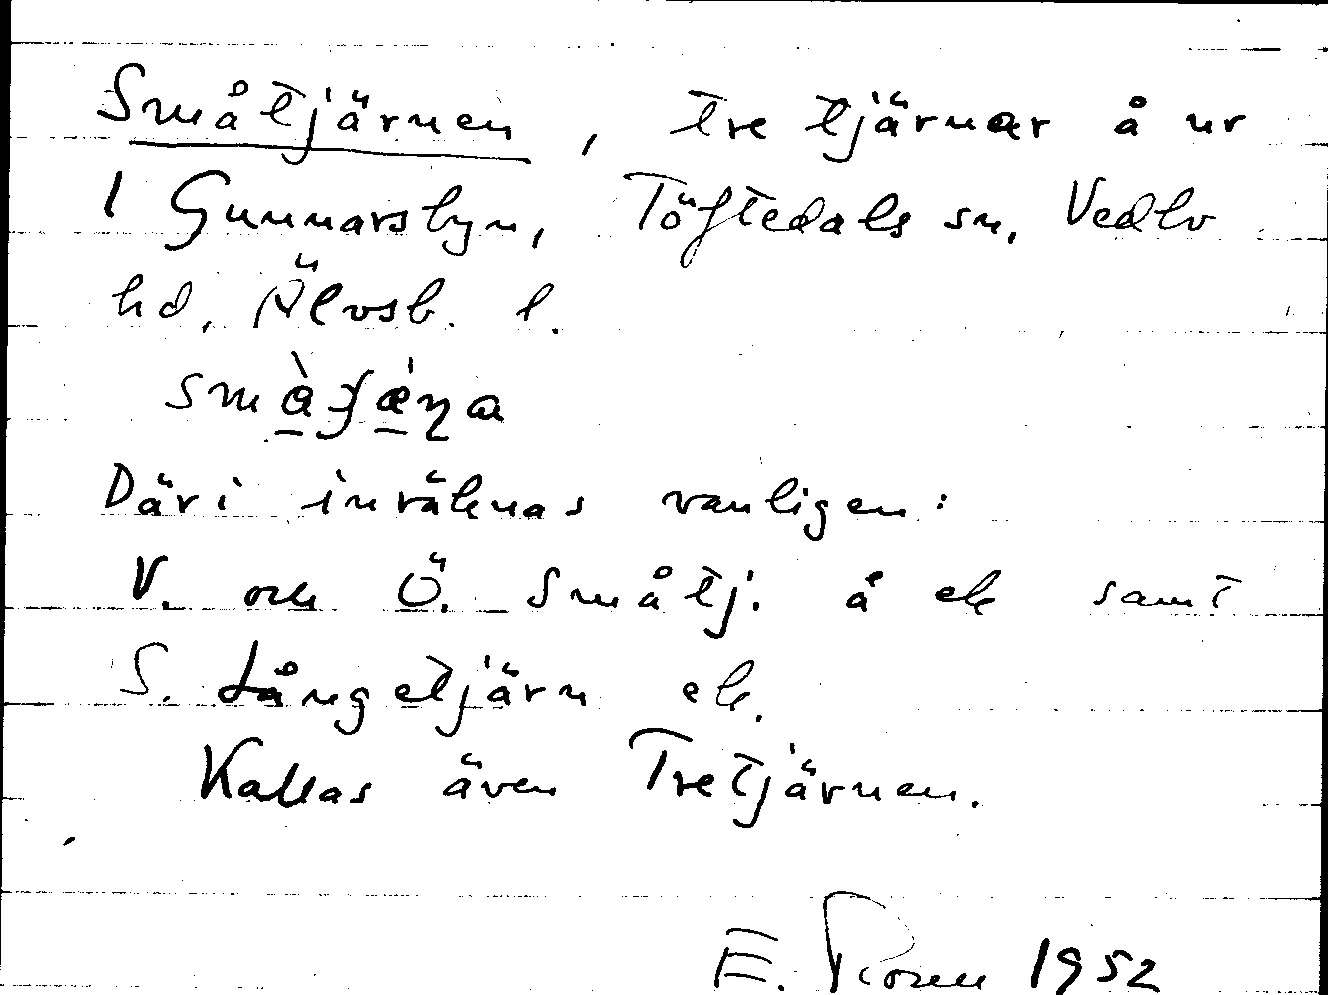 Småtjärnen, tre tjärnar å nr
1 Gunnarsbyn, Töftedals sn, Vedbo
hd, Älvsb. l.
Däri inräknas vanligen:
V. och Ö. Småtj. å ek samt
S. Långetjärn ek.
Kallas även Tretjärnen.
E. 1952